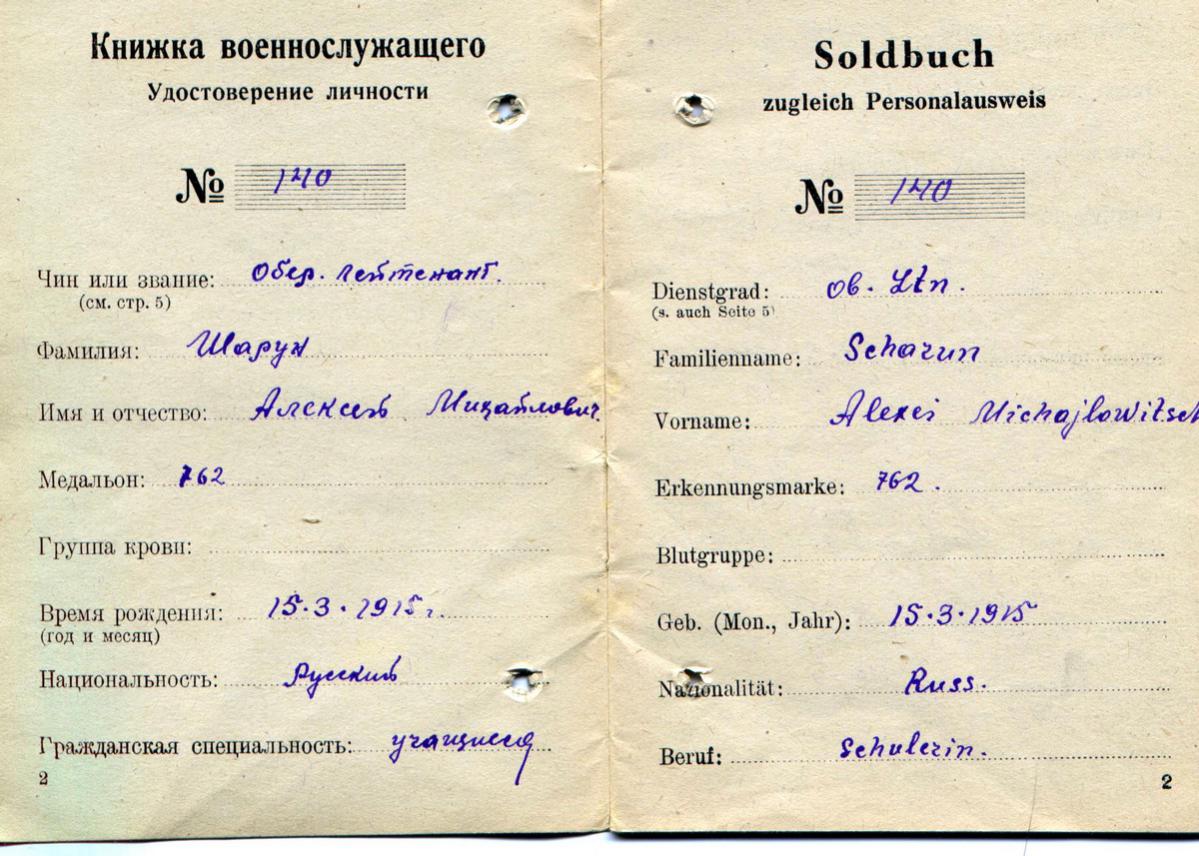 Книжка военнослужащего
Удостоверение личности
№ 140
Чин или звание: Обер. лейтенант.
(см. стр. 5)
Фамилия: Шарун
Имя и отчество: Алексей Михайлович.
Медальон: 762
Группа крови:
Время рождения: 15.3.1915г.
(год и месяц)
Национальность: Русский
Гражданская специальность: учащийся
2
Soldbuch
zugleich Personalausweis
№ 140
Dienstgrad: ob. Ltn.
(s. auch Seite 5)
Familienname: Scharun
Vorname: Alexei Michajlowitsch
Erkennungsmarke: 762.
Blutgruppe:
Geb. (Mon., Jahr): 15.3.1915
Nazionalität: Russ.
Beruf: Schulerin.
2